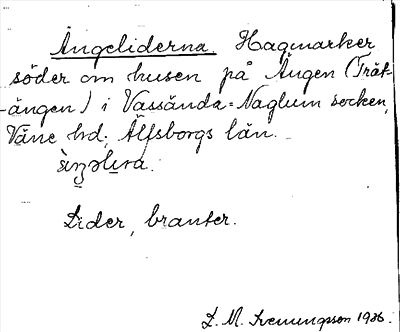 Ängeliderna. Hagmarker
söder om husen på Ängen (Träk-
ängen) i Vassända=Naglum socken,
Väne hd, Älfsborgs län.
Lider, branter.
D. M. Svenungsson 1926.